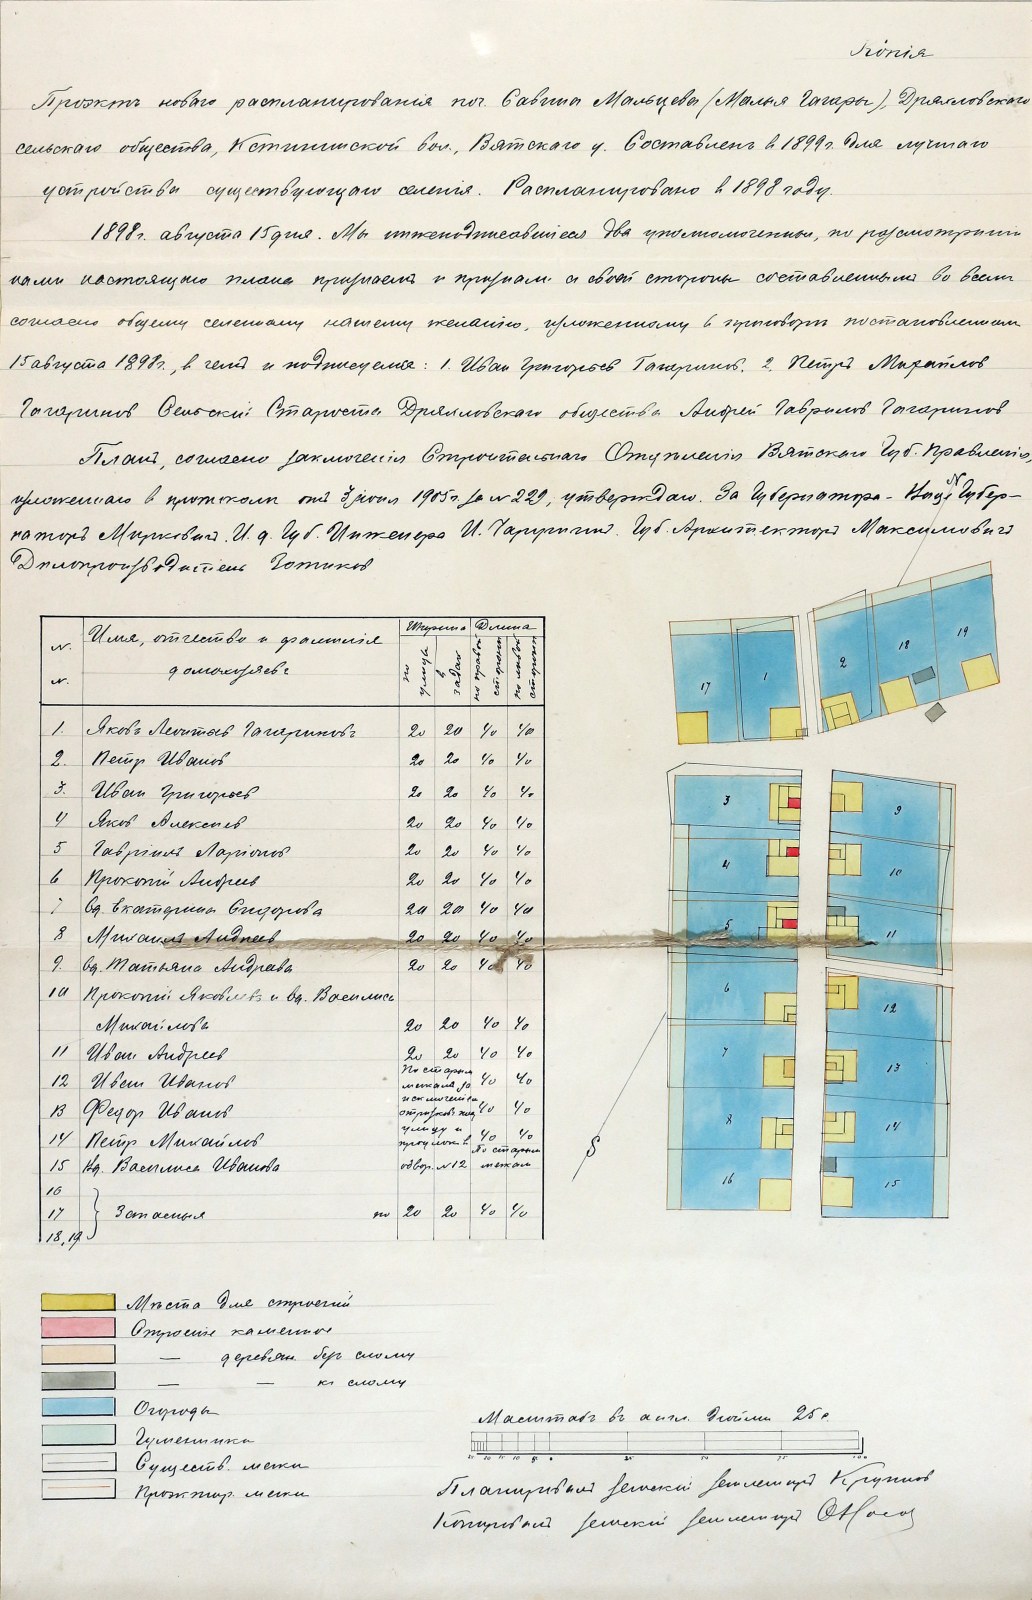 Копія
Проэктъ новаго распланированія поч. Саввина Мальцева (Малыя Гагары), Дряхловскаго
сельскаго общества, Кстининской вол., Вятскаго у. Составленъ в 1899 г. для лучшаго
устройства существующаго селенія. Распланировано в 1898 году.
1898 г. августа 15 дня. Мы нижеподписавшіеся два уполномоченныя, по разсмотреніи
нами настоящаго плана признаемъ и признали с своей стороны составленнымъ во всемъ
согласно общему селенному нашему желанію, изложенному в приговоре постановленномъ
15 августа 1898 г., в чемъ и подписуемся: 1. Иван Григорьев Гагаринов. 2. Петръ Михайлов
Гагаринов Сельскій Староста Дряхловскаго общества Андрей Гаврилов Гагаринов
Планъ, согласно заключенія Строительнаго Отделенія Вятскаго Губ. Правленія,
изложеннаго в протоколе от 3 іюня 1905 г. за № 229, утверждаю. За Губернатора - Вице Губер-
наторъ Мирковичъ. И. д. Губ. Инженера И. Чарушинъ. Губ. Архитекторъ Максимовичъ
Делопроизводитель Готиков
N
N. N. Имя, отчество и фамилія домохозяевъ Ширина по улице в задах Длина по правой стороне по левой стороне
1. Яковъ Леонтьев Гагариновъ 20 20 40 40
2. Петр Иванов 20 20 40 40
3. Иван Григорьев 20 20 40 40
4 Яков Алексеев 20 20 40 40
5 Гавріилъ Ларіонов 20 20 40 40
6 Прокопій Андреев 20 20 40 40
7 вд. Екатерина Сидорова 20 20 40 40
8 Михаилъ Андреев 20 20 40 40
9. вд. Татьяна Андреева 20 20 40 40
10 Прокопій Яковлевъ и вд. Василиса
Михайлова 20 20 40 40
11 Иван Андреев 20 20 40 40
12 Иван Иванов По старым межам за 40 40
13 Федор Иванов исключеніем отрезков под 40 40
14 Петр Михайлов улицу и проулок в 40 40
15 Вд. Василиса Иванова одвор. № 12 По старым межам
16
17 Запасныя по 20 20 40 40
18, 19
17 1 2 18 19
3 9
4 10
5 11
6 12
7 13
8 14
16 15
S
Места для строеній
Строеніе каменное
— деревян. без слому
— — къ слому
Огороды
Гуменники
Существ. межи
Проэктир. межи
Масштабъ въ англ. дюйме 25 с.
Планировалъ земскій землемеръ Крупинов
Копировалъ земскій землемеръ